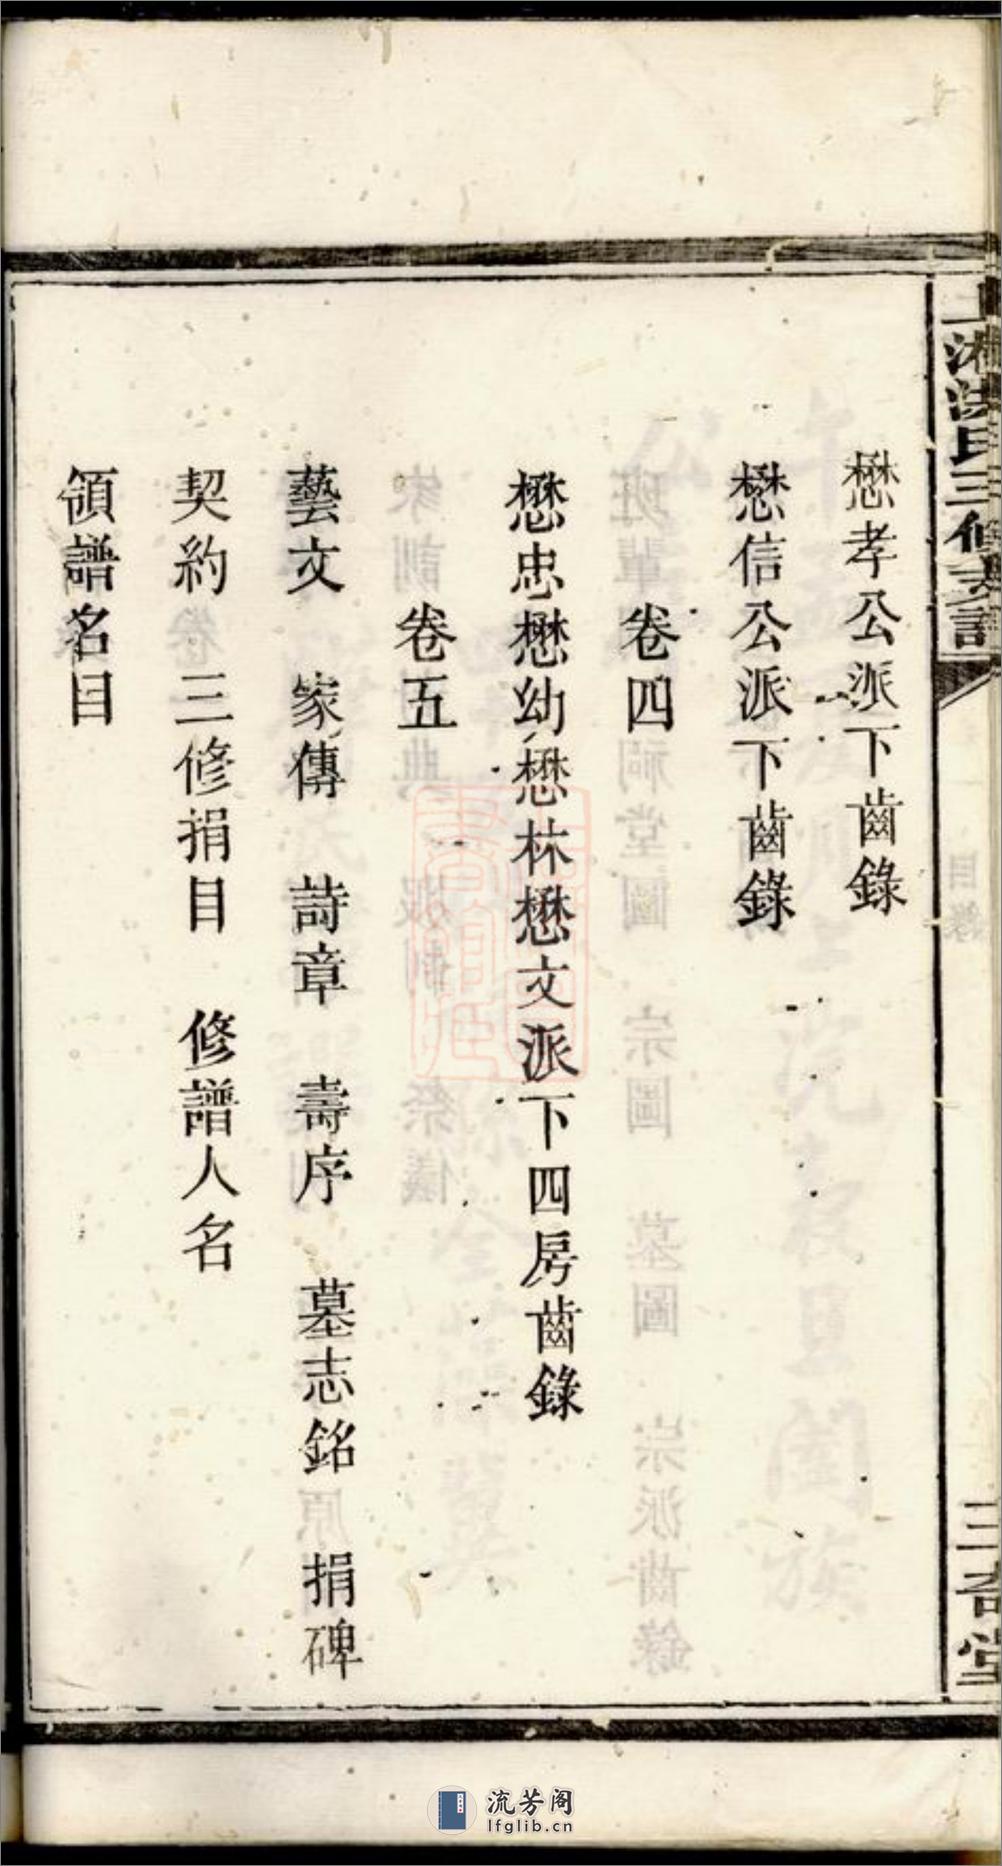 上湘洪氏三修支譜
目錄
懋孝公派下齒錄
懋信公派下齒錄
卷四
懋忠懋幼懋林懋文派下四房齒錄
卷五
藝文 家傳 詩章 壽序 墓志銘 捐碑
契約 三修捐目 修譜人名
領譜名目
流芳阁
lfglib.cn